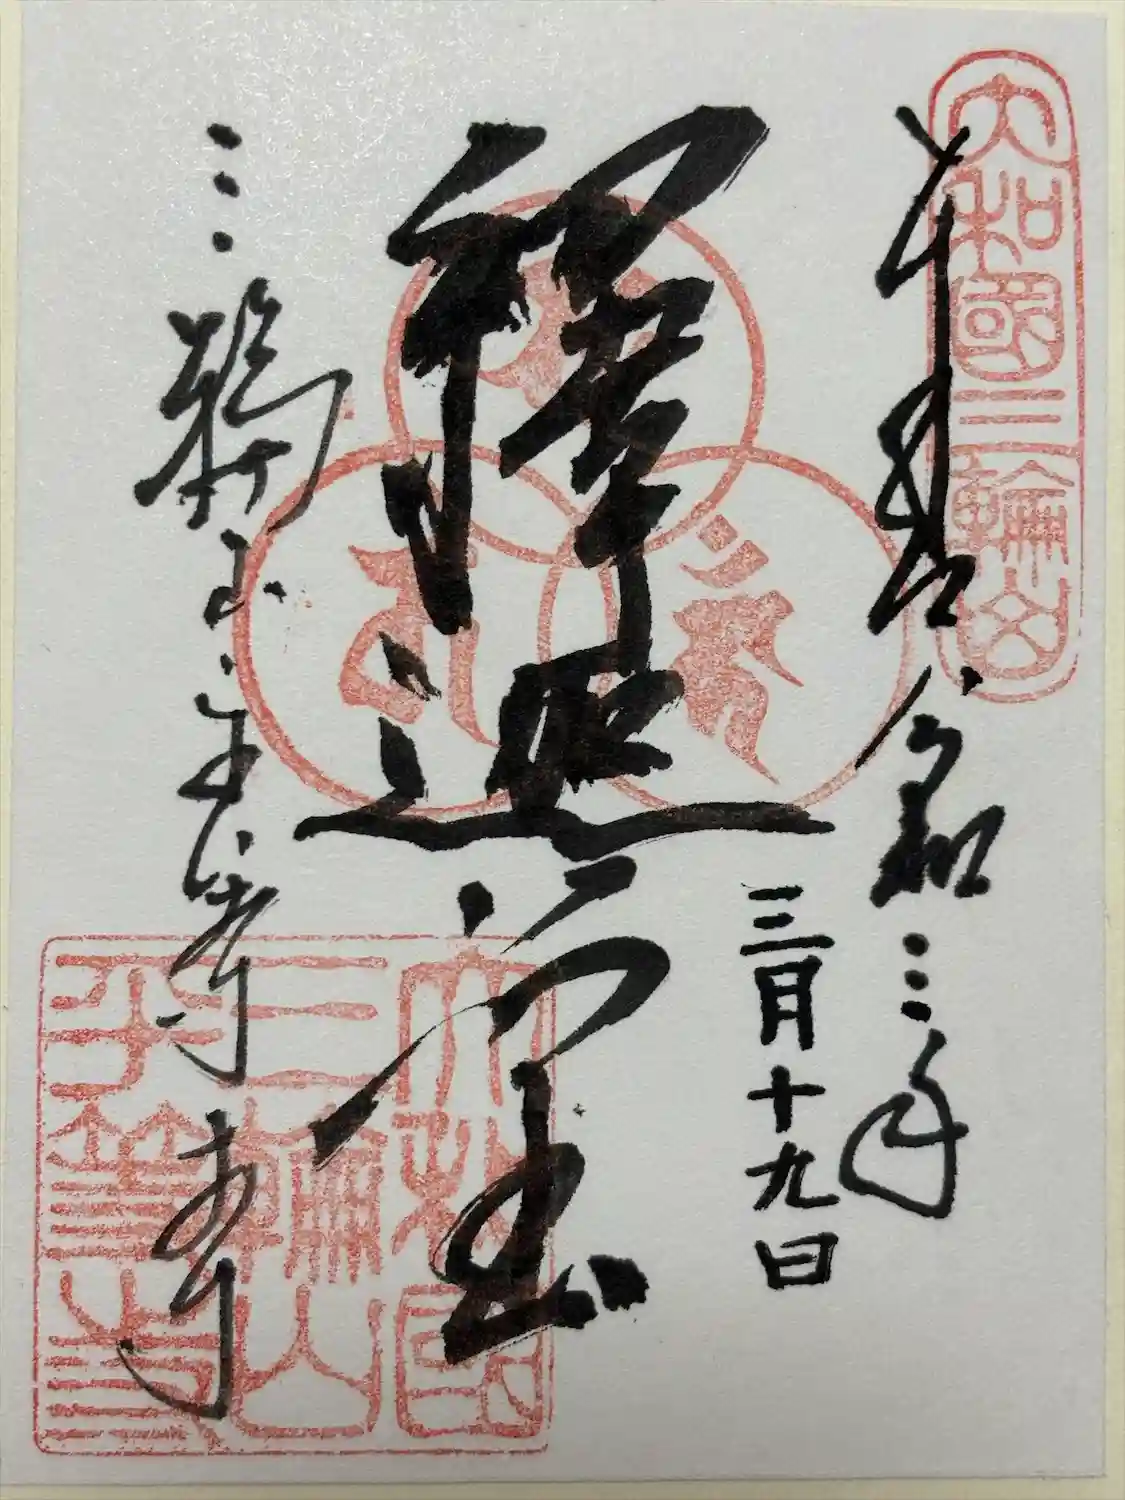 大和國三輪山
奉拝 令和三年
三月十九日
釋迦堂
三輪山平等寺
大和国
三輪山
平等寺